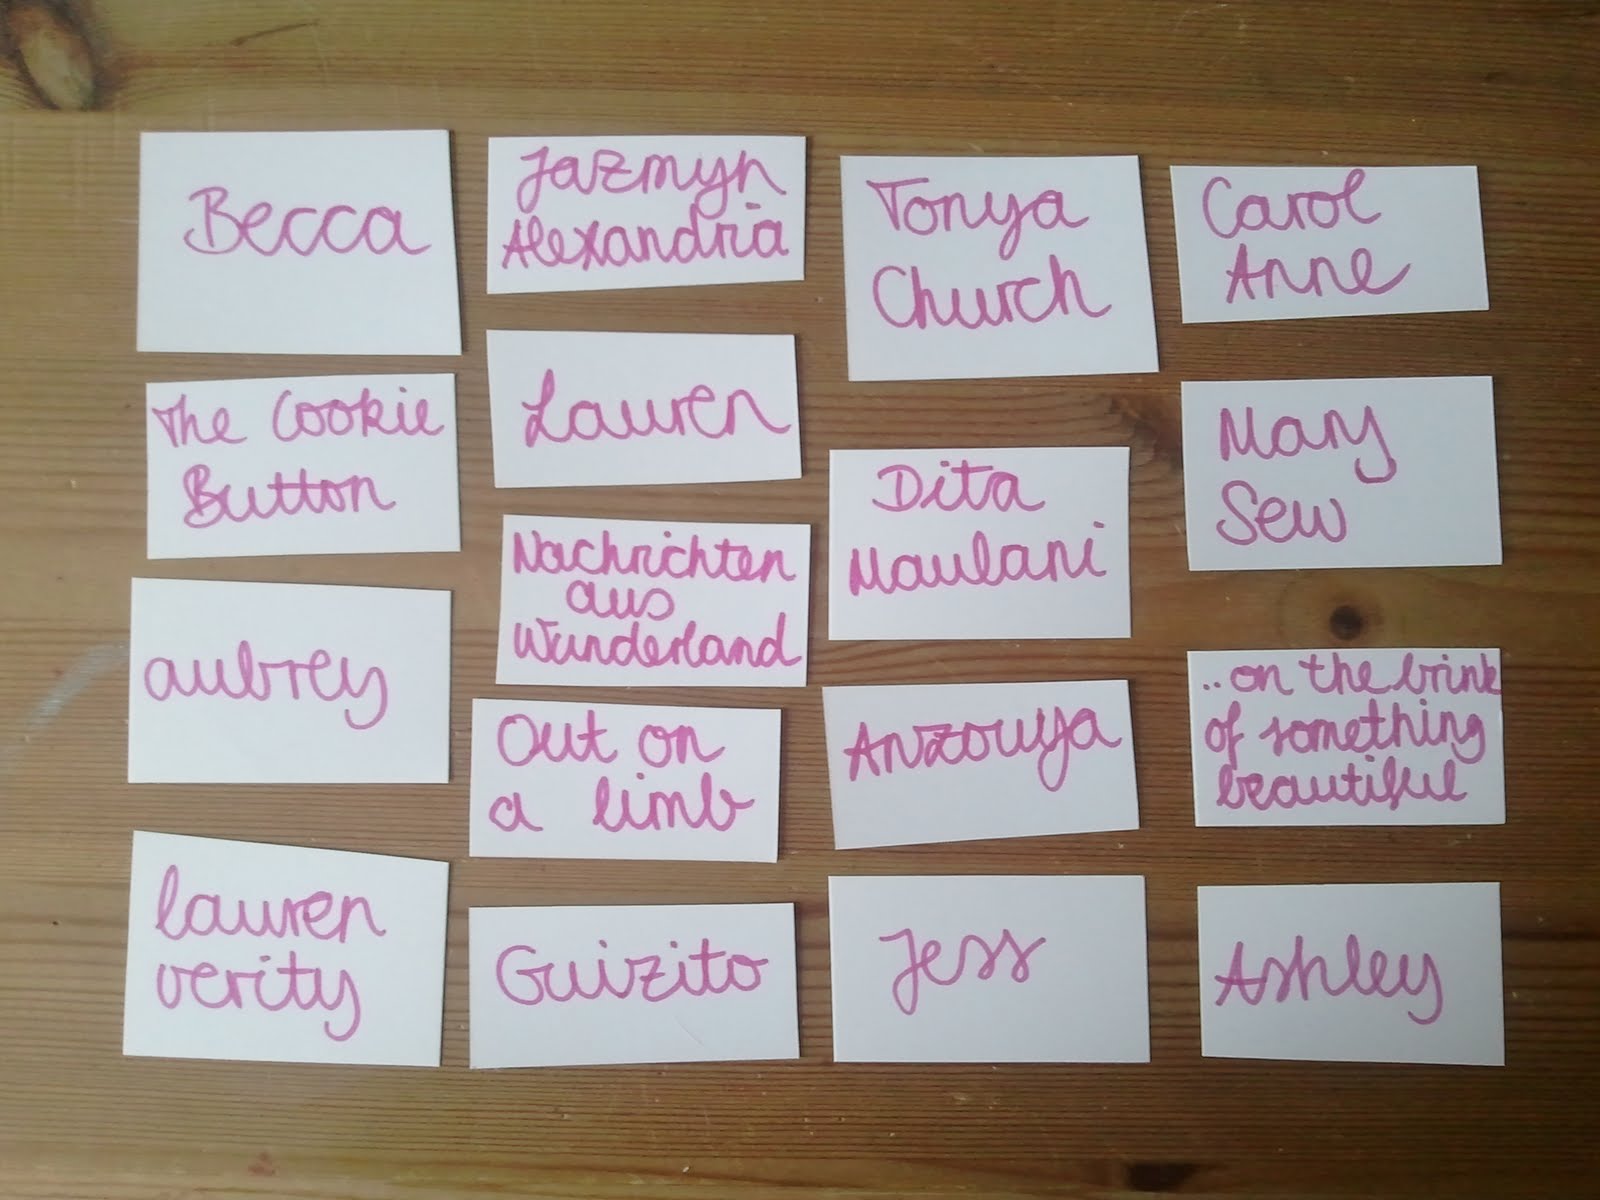 Becca
Jazmyn
Alexandria
Tonya
Church
Carol
Anne
The Cookie
Button
Lauren
Dita
Maulani
Mary
Sew
aubrey
Nachrichten
aus
Wunderland
Out on
a limb
Anzouya
..on the brink
of something
beautiful
lauren
verity
Guizito
Jess
Ashley